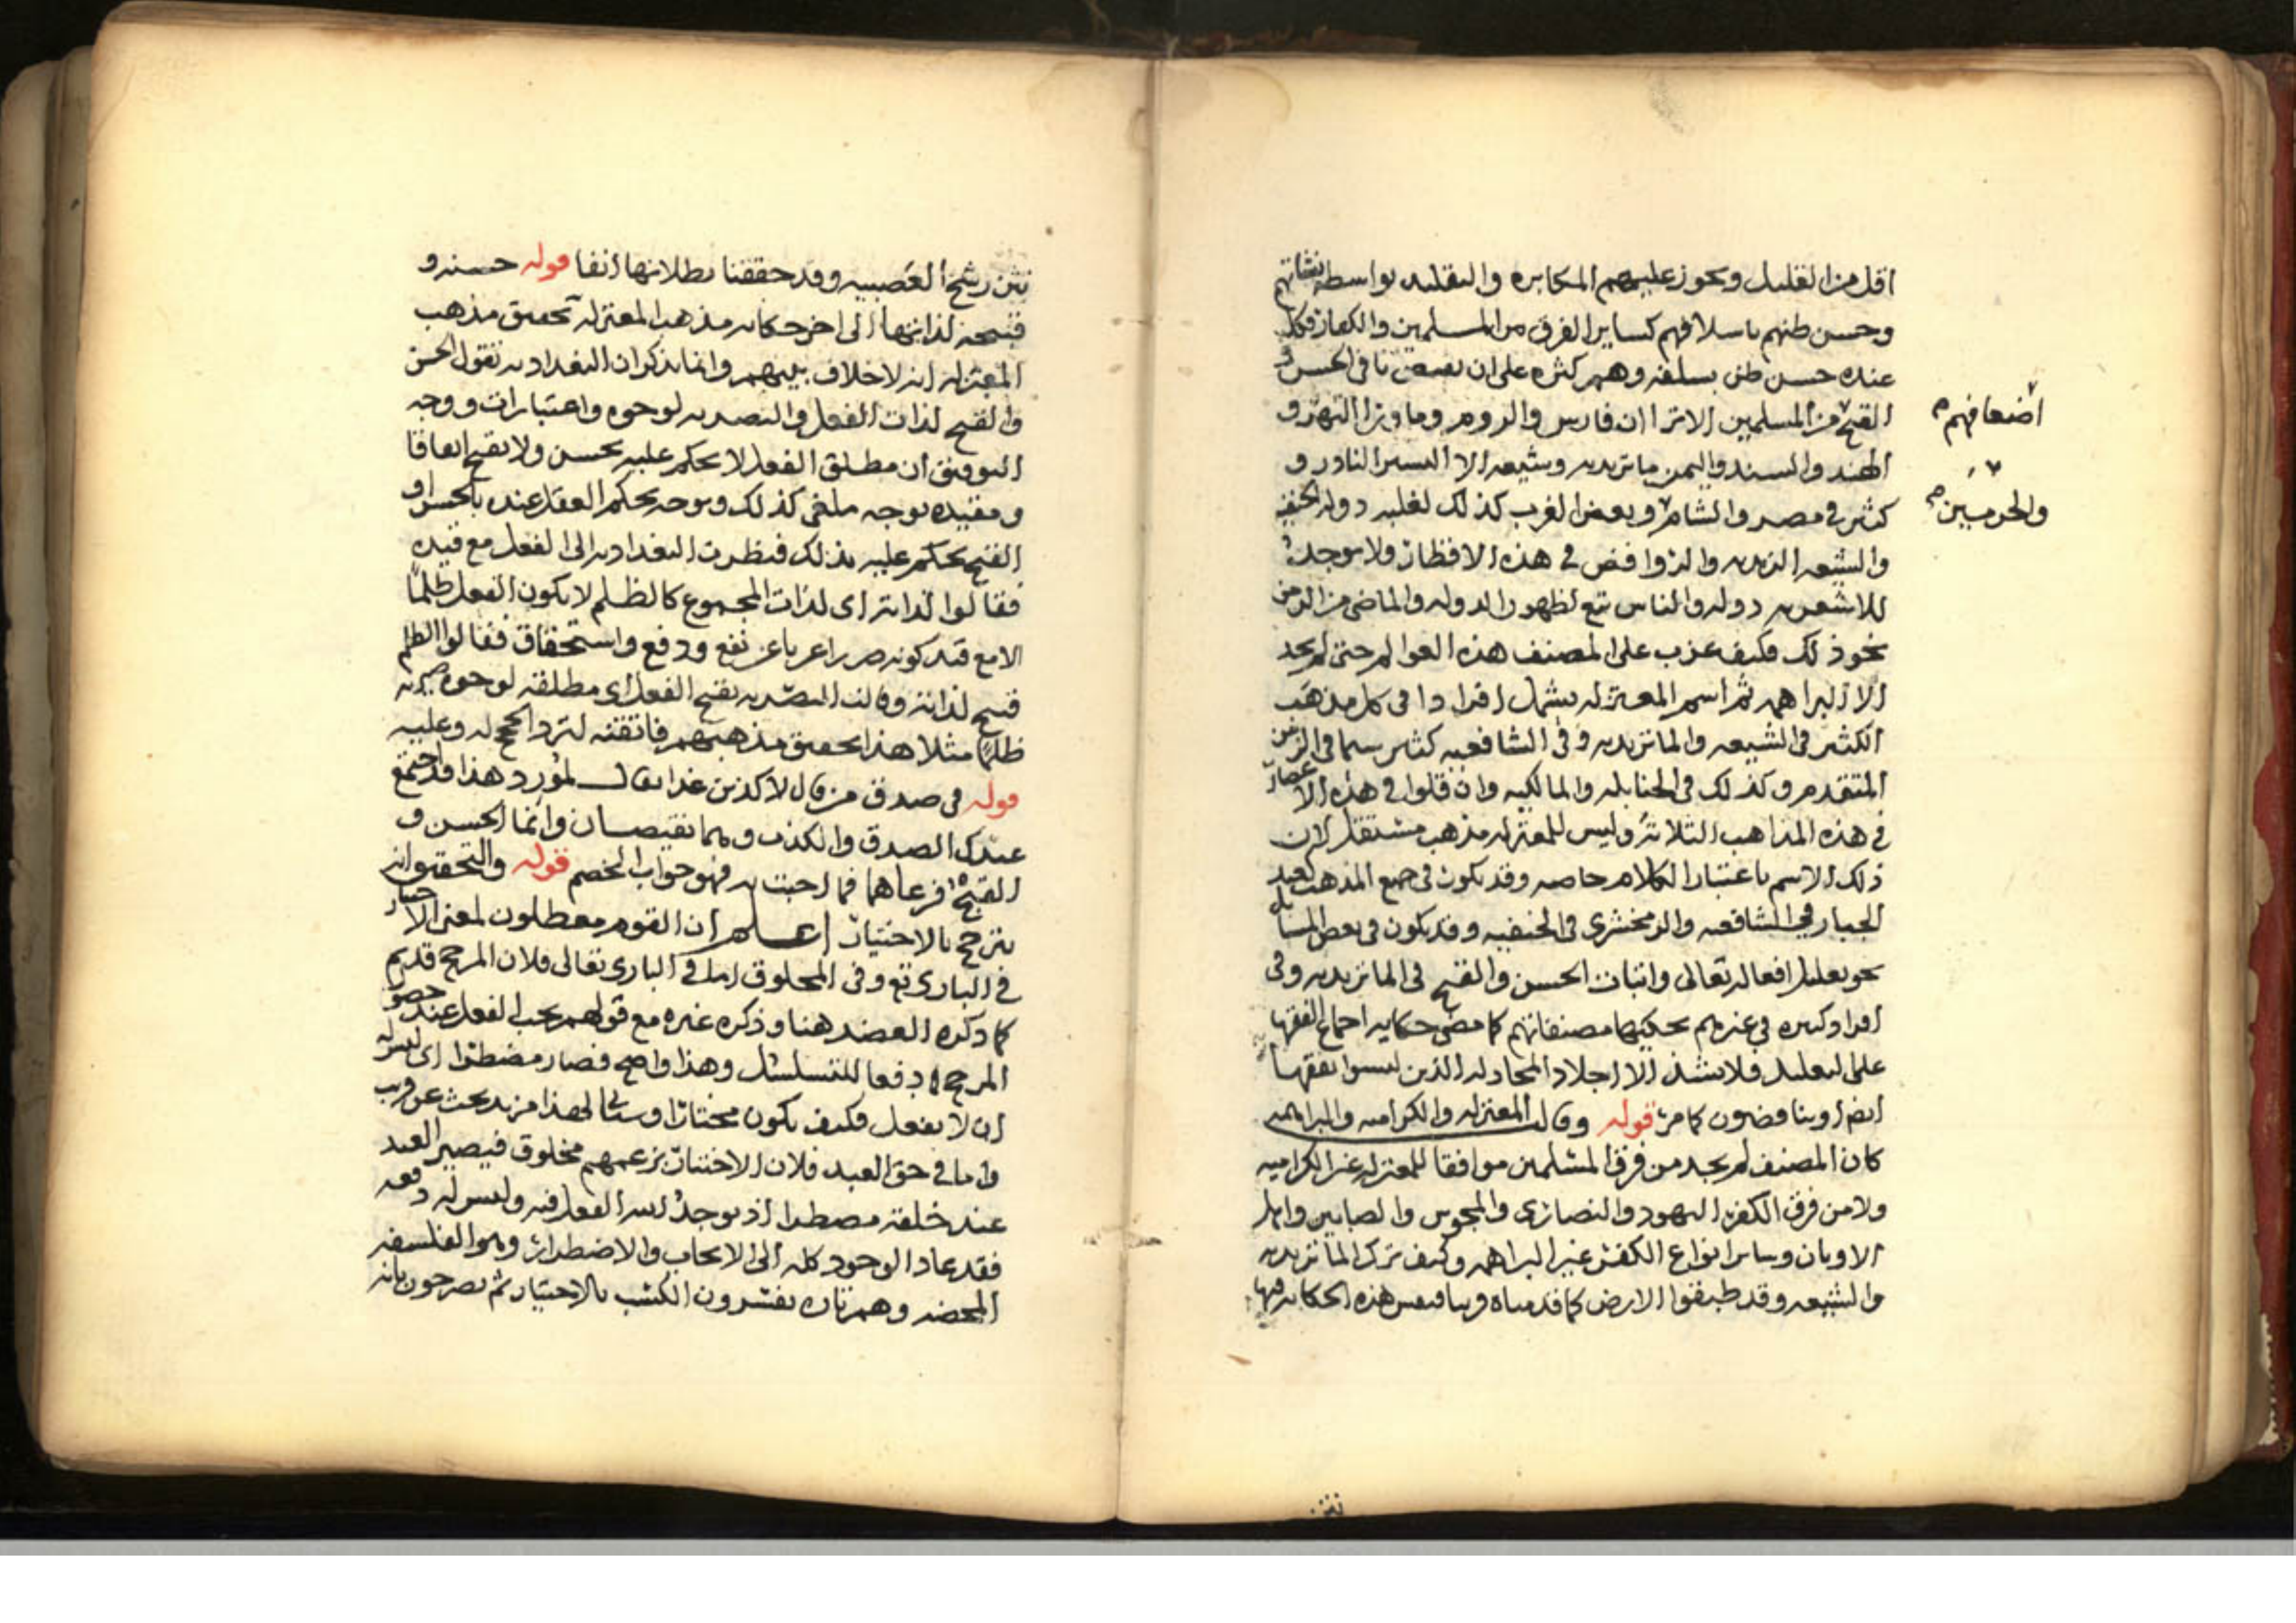 اقل من القليل ويجوز عليهم المكابره والتقليد بواسطه نشاتهم
وحسن ظنهم باسلافهم كساير الفرق من المسلمين والكفار فكل
عنده حسن ظن بسلفه وهم كثره على ان نافى الحسن و
القبح من المسلمين الا ترا ان فارس والروم وما ورا النهر و
الهند والسند واليمن ماتريديه وشيعه الا اليسير النادر و
كثير في مصر والشام وبعض الغرب كذلك لغلبه دوله الحنفيه
والشيعه الزيديه والروافض في هذه الاقطار ولا يوجد
للاشعريه دوله والناس تبع لظهور الدوله والماضى من الزمن
نحو ذلك فكيف عزب على المصنف هذه العوالم حتى لم يجد
الا البراهمه ثم اسم المعتزله يشمل افرادا فى كل مذهب
الكثير فى الشيعه والماتريديه وفى الشافعيه كثير سيما فى الزمن
المتقدم وكذلك فى الحنابله والمالكيه وان قلوا في هذه الاعصار
في هذه المذاهب الثلاثه وليس للمعتزله مذهب مستقل لان
ذلك الاسم باعتبار الكلام خاصه وقد يكون فى جميع المذهب كعبد
الجبار في الشافعيه والزمخشرى فى الحنفيه وقد يكون فى بعض المسايل
نحو تعليل افعاله تعالى واثبات الحسن والقبح فى الماتريديه وفى
افراد كثيره في غيرهم تحكيها مصنفاتهم كما مضى حكايه اجماع الفقها
على التعليل فلا يشذ الا اجلاد المجادله الذين ليسوا بفقها
ايضا وينا قضون كما مر قوله وقالت المعتزله والكراميه والبراهمه
كان المصنف لم يجد من فرق المسلمين موافقا للمعتزله غير الكراميه
ولا من فرق الكفر اليهود والنصارى والمجوس والصابين واهل
الاديان وساير انواع الكفر غير البراهمه وكيف ترك الماتريديه
والشيعه وقد طبقوا الارض كما قدمناه هذه الحكايه فيها
اضعافهم
والحرمين
نثن
نثن رشح العصبيه وقد حققنا بطلانها انفا قوله حسنه و
قبيحه لذاتها الى اخر حكايه مذهب المعتزله تحقيق مذهب
المعتزله انه لا خلاف بينهم وانما يذكر ان البغداديه تقول الحسن
والقبح لذات الفعل والبصريه لوجوه واعتبارات ووجه
التوفيق ان مطلق الفعل لا يحكم عليه بحسن ولا بقبح اتفاقا
ومقيده بوجه ملغى كذلك وبوجه يحكم العقل عنده بالحسن او
القبح يحكم عليه بذلك فنظرت البغداديه الى الفعل مع قيده
فقالوا لذاته اى لذات المجموع كالظلم لا يكون الفعل ظلما
الا مع قيد كونه ضررا عريا عن نفع ودفع واستحقاق فقالوا الظلم
قبيح لذاته وقالت البصريه يقبح الفعل اى مطلقه لوجوه
ظلما مثلا هذا تحقيق مذهبهم فاتقنه لترد الحجج له وعليه
قوله فى صدق من قال لاكذبن غدا يقال لمورد هذا قد اجتمع
عندك الصدق والكذب وهما نقيضان وانما الحسن و
القبح فرعاهما فما اجبت به فهو جواب الخصم قوله والتحقيق انه
يترجح بالاختيار اعلم ان القوم معطلون لمعنى الاختيار
في البارى تع وفى المخلوق اما في البارى تعالى فلان المرجح قديم
كما ذكره العضد هنا وذكره غيره مع قولهم يجب الفعل عند حصول
المرجح دفعا للتسلسل وهذا واضح فصار مضطرا اى ليس له
ان لا يفعل فكيف يكون مختارا لهذا مزيد بحث عن قريب
واما في حق العبد فلان الاختيار بزعمهم مخلوق فيصير العبد
عند خلقه مضطرا اذ يوجد الله الفعل فيه وليس له دفعه
فقد عاد الوجود كله الى الايجاب والاضطرار وهو الفلسفه
المحضه وهم تاره يفسرون الكسب بالاختيار ثم يصرحون بانه